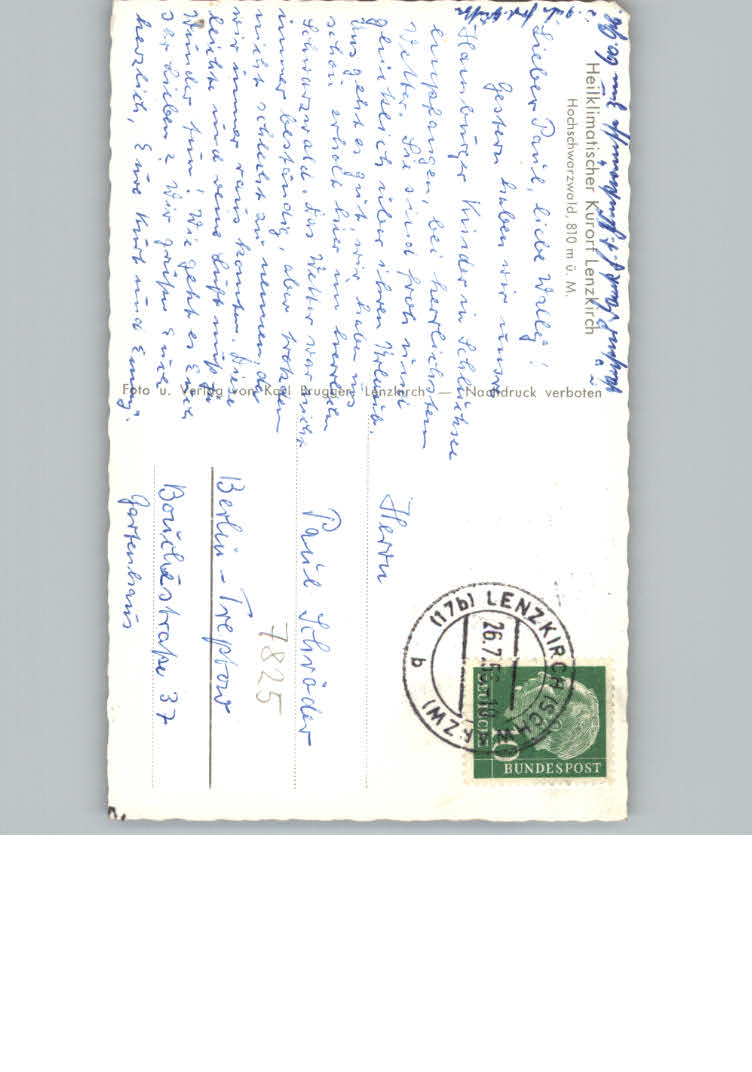 Heilklimatischer Kurort Lenzkirch
Hochschwarzwald, 810 m ü. M.
Lieber Paul, liebe Willy!
Gestern haben wir unsere
Hamburger Kinder in Schluchsee
empfangen, bei herrlichstem
Wetter. Sie sind froh und
glücklich über ihren Urlaub.
Uns geht es gut, wir haben uns
schön erholt hier im herrlichen
Schwarzwald. Das Wetter war nicht
immer beständig, aber trotzdem
nicht schlecht zu nennen, da
wir immer raus konnten. Diese
leichte und reine Luft muß ja
Wunder tun! Wie geht es Euch
Ihr Lieben? Wir grüßen Euch
herzlich, Eure Kurt und Emmy.
Foto u. Verlag von Karl Bruggen, Lenzkirch — Nachdruck verboten
Herrn
Paul Schröder
Berlin-Treptow
Bouchéstraße 37
Gartenhaus
7825
(17b) LENZKIRCH (SCHWARZW)
26.7.56
b
10
BUNDESPOST